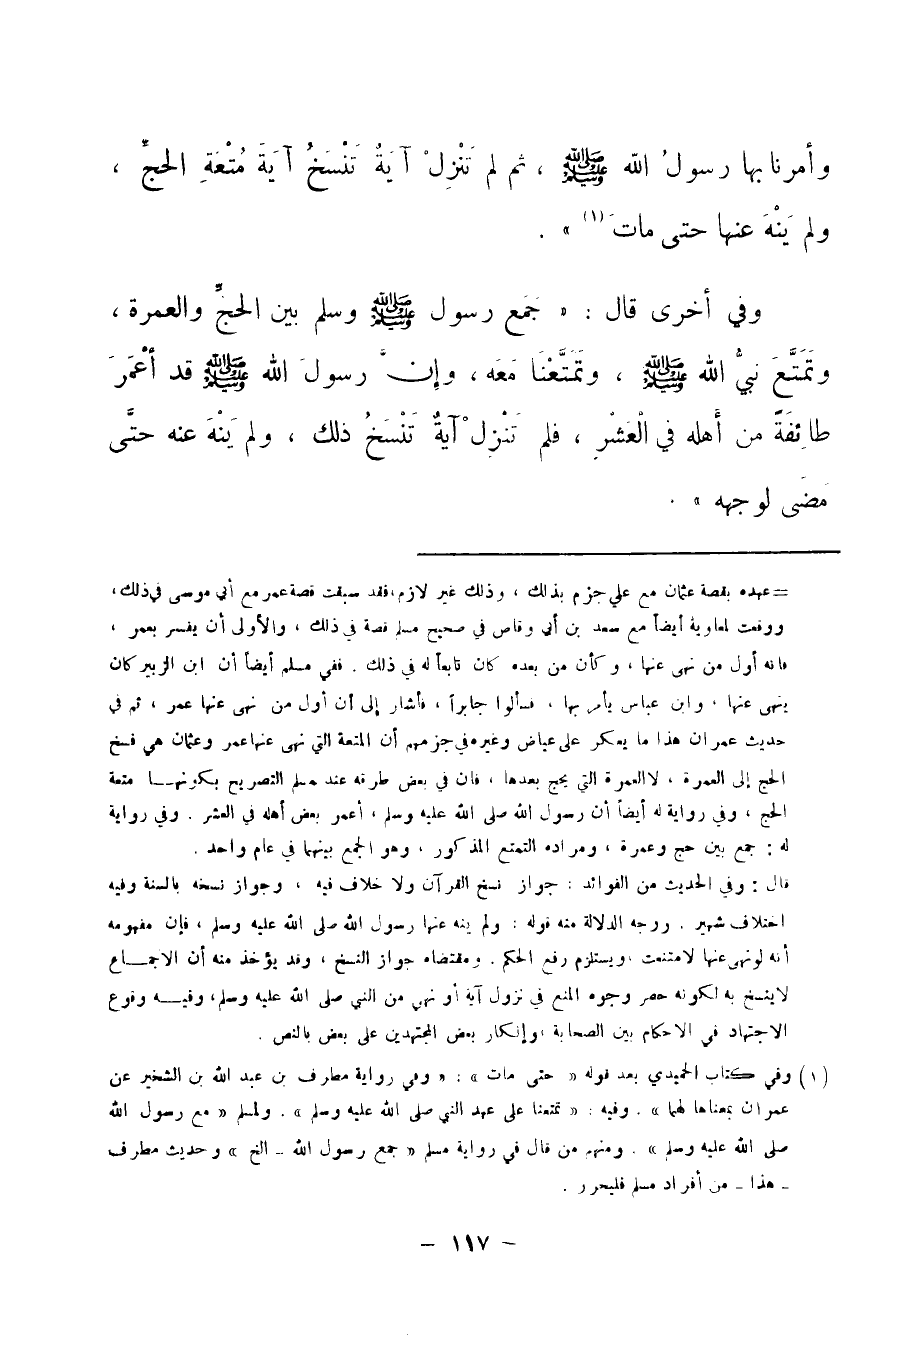 وأمرنا بها رسولُ الله ﷺ ، ثم لم تَنْزِلْ آيةٌ تَنْسَخُ آيَةَ مُتْعَةِ الحجِّ ،
ولم يَنْهَ عنها حتى ماتَ (١) » .
وفي أخرى قال : « جَمَع رسول ﷺ وسلم بين الحجِّ والعمرة ،
وتَمَتَّعَ نبيُّ الله ﷺ ، وتَمَتَّعْنَا مَعَه ، وإنَّ رسولَ الله ﷺ قد أعْمَرَ
طائِفَةً من أهله في الْعَشْرِ ، فلم تَنْزِلْ آيةٌ تَنْسَخُ ذلك ، ولم يَنْهَ عنه حتَّى
مَضَى لوجهه » .
= عهده بقصة عثمان مع علي جزم بذلك ، وذلك غير لازم ، فقد سبقت قصة عمر مع أبي موسى في ذلك ،
ووقعت لمعاوية أيضاً مع سعد بن أبي وقاص في صحيح مسلم قصة في ذلك ، والأولى أن يفسر بعمر ،
فانه أول من نهى عنها ، وكأن من بعده كان تابعاً له في ذلك . ففي مسلم أيضاً أن ابن الزبير كان
ينهى عنها ، وابن عباس يأمر بها ، فسألوا جابراً ، فأشار إلى أن أول من نهى عنها عمر ، ثم في
حديث عمران هذا ما يعكر على عياض وغيره في جزمهم أن المتعة التي نهى عنها عمر وعثمان هي فسخ
الحج إلى العمرة ، لا العمرة التي يحج بعدها ، فان في بعض طرقه عند مسلم التصريح بكونهـا متعة
الحج ، وفي رواية له أيضاً أن رسول الله صلى الله عليه وسلم ، أعمر بعض أهله في العشر . وفي رواية
له : جمع بين حج وعمرة ، ومراده التمتع المذكور ، وهو الجمع بينهما في عام واحد .
قال : وفي الحديث من الفوائد : جواز نسخ القرآن ولا خلاف فيه ، وجواز نسخه بالسنة وفيه
اختلاف شهير . ووجه الدلالة منه قوله : ولم ينه عنها رسول الله صلى الله عليه وسلم ، فإن مفهومه
أنه لو نهى عنها لامتنعت ، ويستلزم رفع الحكم . ومقتضاه جواز النسخ ، وقد يؤخذ منه أن الاجمـاع
لا ينسخ به لكونه حصر وجوه المنع في نزول آية أو نهي من النبي صلى الله عليه وسلم ، وفيـه وقوع
الاجتهاد في الاحكام بين الصحابة ، وإنكار بعض المجتهدين على بعض بالنص .
(١) وفي كتاب الحميدي بعد قوله « حتى مات » : « وفي رواية مطرف بن عبد الله بن الشخير عن
عمران بمعناها لهما » . وفيه : « تمتعنا على عهد النبي صلى الله عليه وسلم » . ولمسلم « مع رسول الله
صلى الله عليه وسلم » . ومنهم من قال في رواية مسلم « جمع رسول الله - الخ » وحديث مطرف
- هذا - من أفراد مسلم فليحرر .
- ١١٧ -